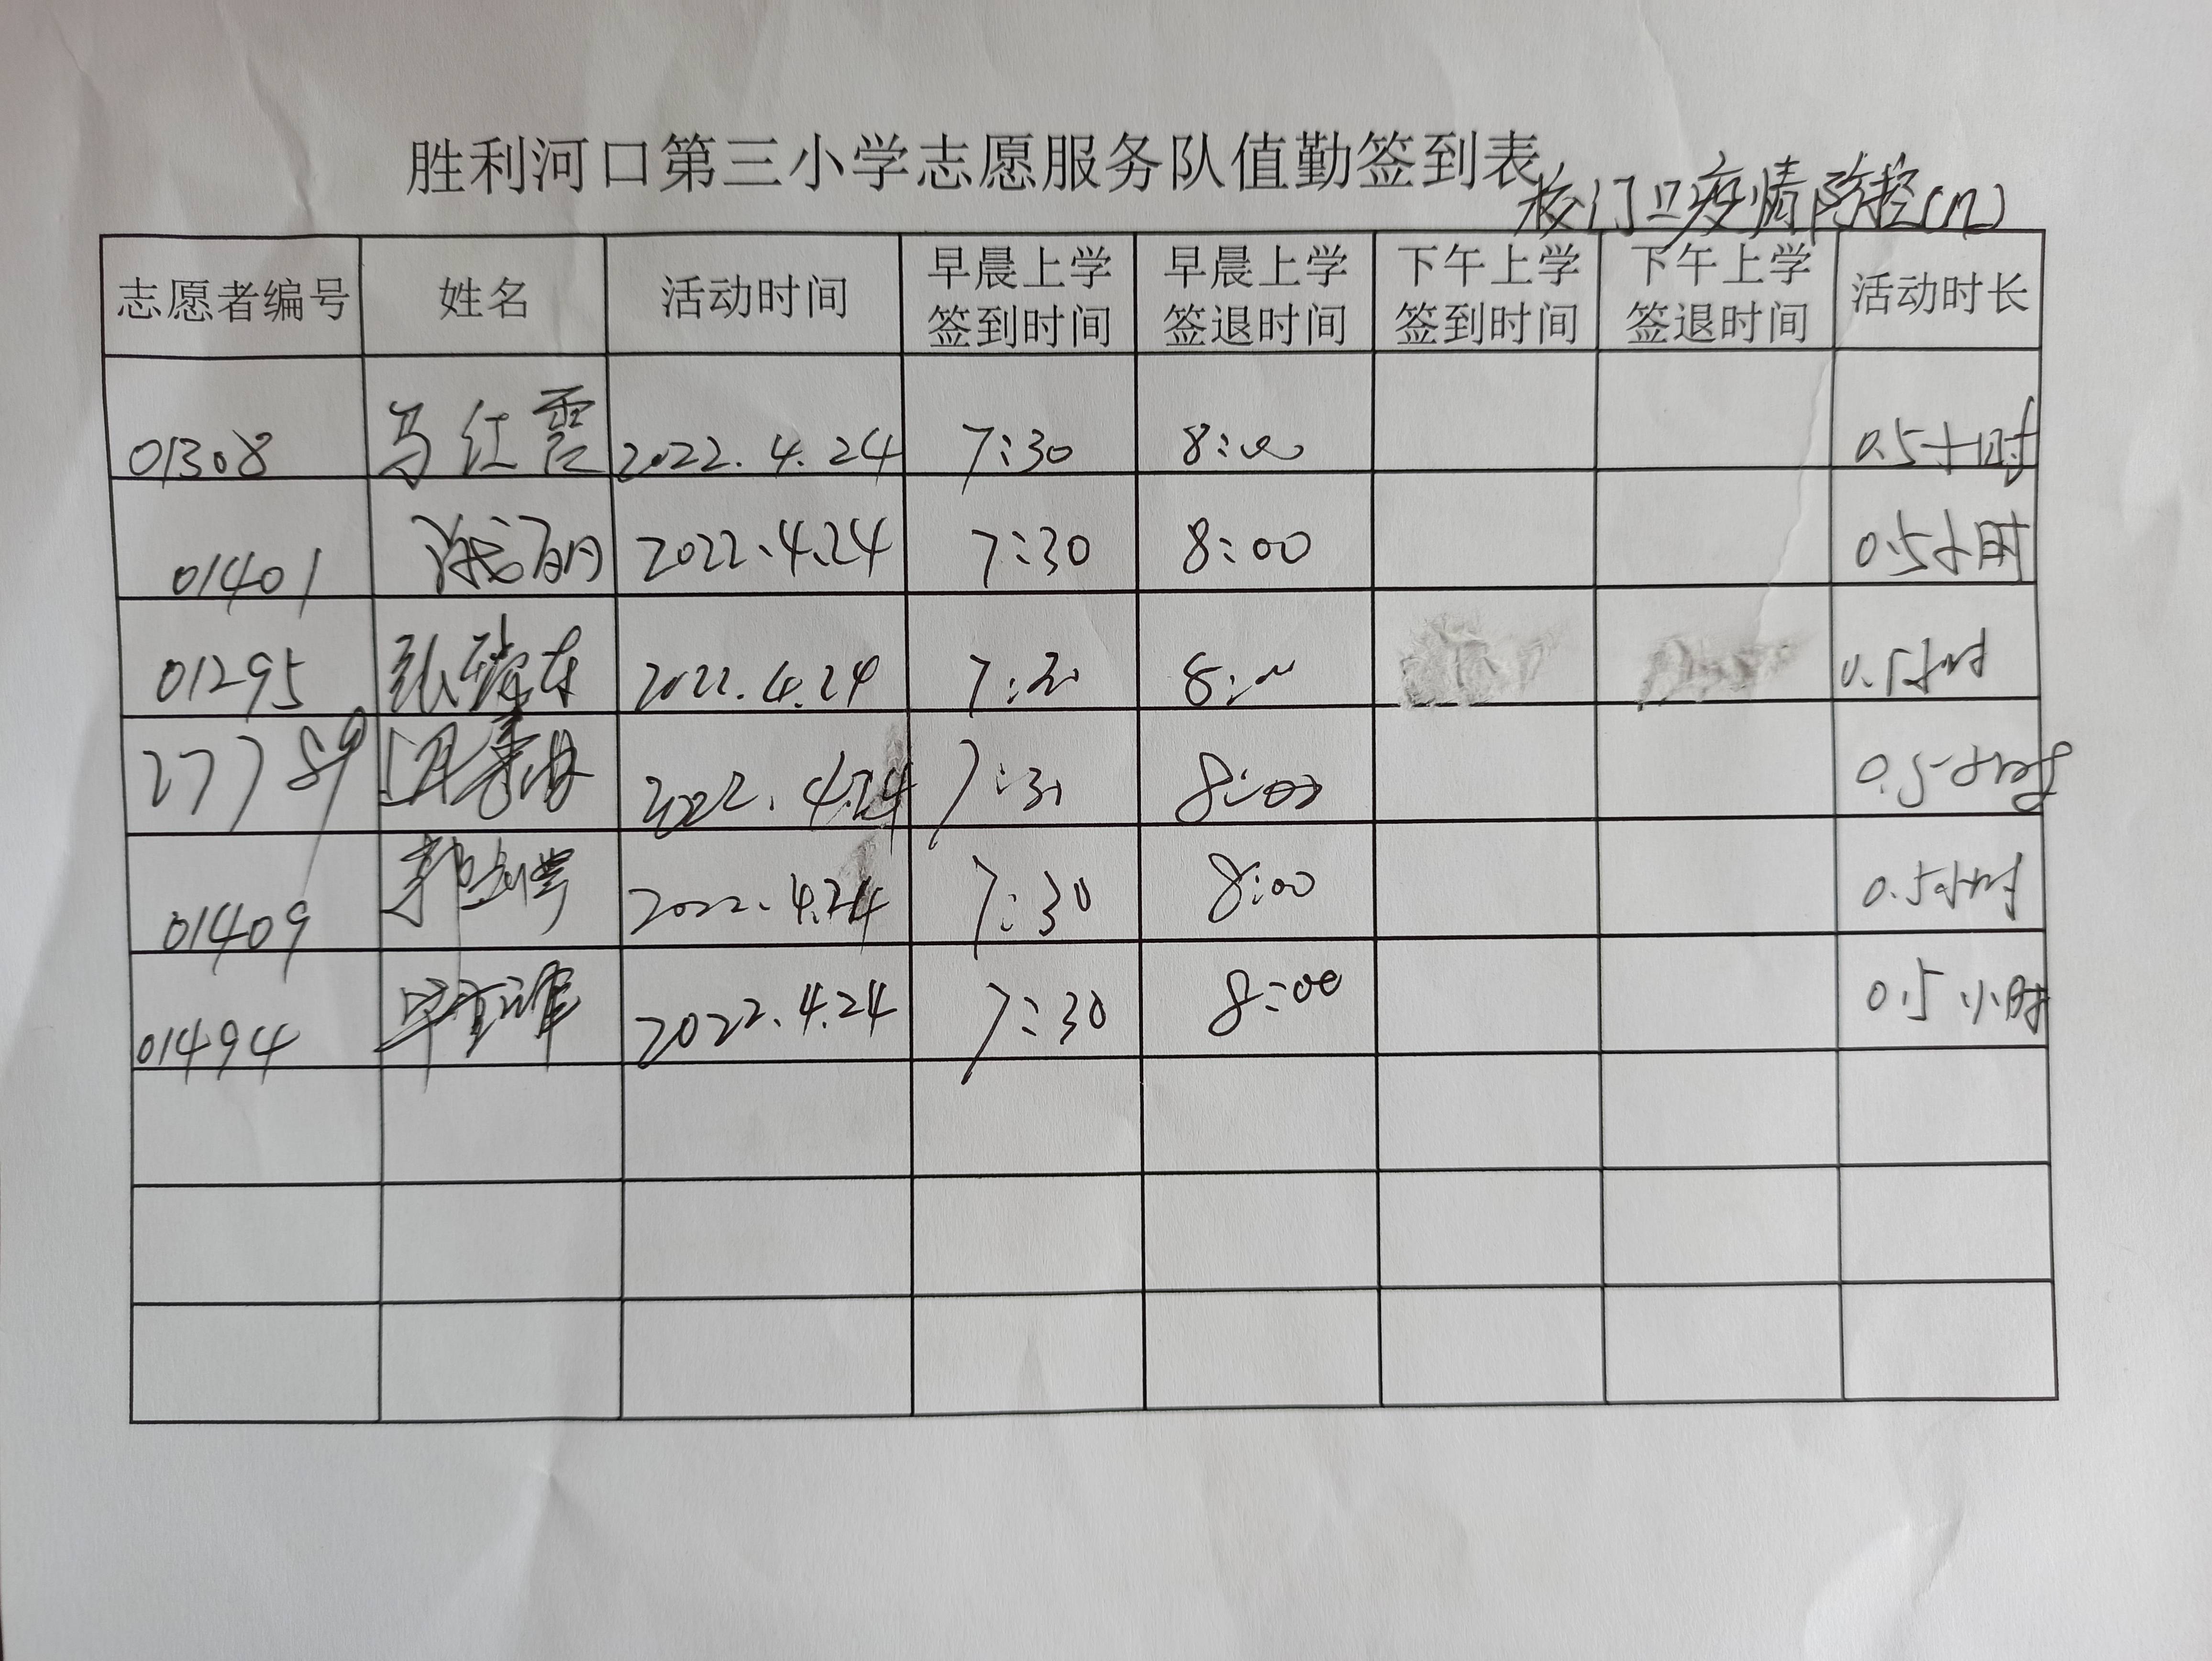 胜利河口第三小学志愿服务队值勤签到表
校门口疫情防控
志愿者编号 姓名 活动时间 早晨上学签到时间 早晨上学签退时间 下午上学签到时间 下午上学签退时间 活动时长
01308 马红霞 2022.4.24 7:30 8:00 0.5小时
01401 2022.4.24 7:30 8:00 0.5小时
01295 张瑞东 2022.4.24 7:30 8:00 0.5小时
27789 2022.4.24 7:30 8:00 0.5小时
01409 2022.4.24 7:30 8:00 0.5小时
01494 2022.4.24 7:30 8:00 0.5小时